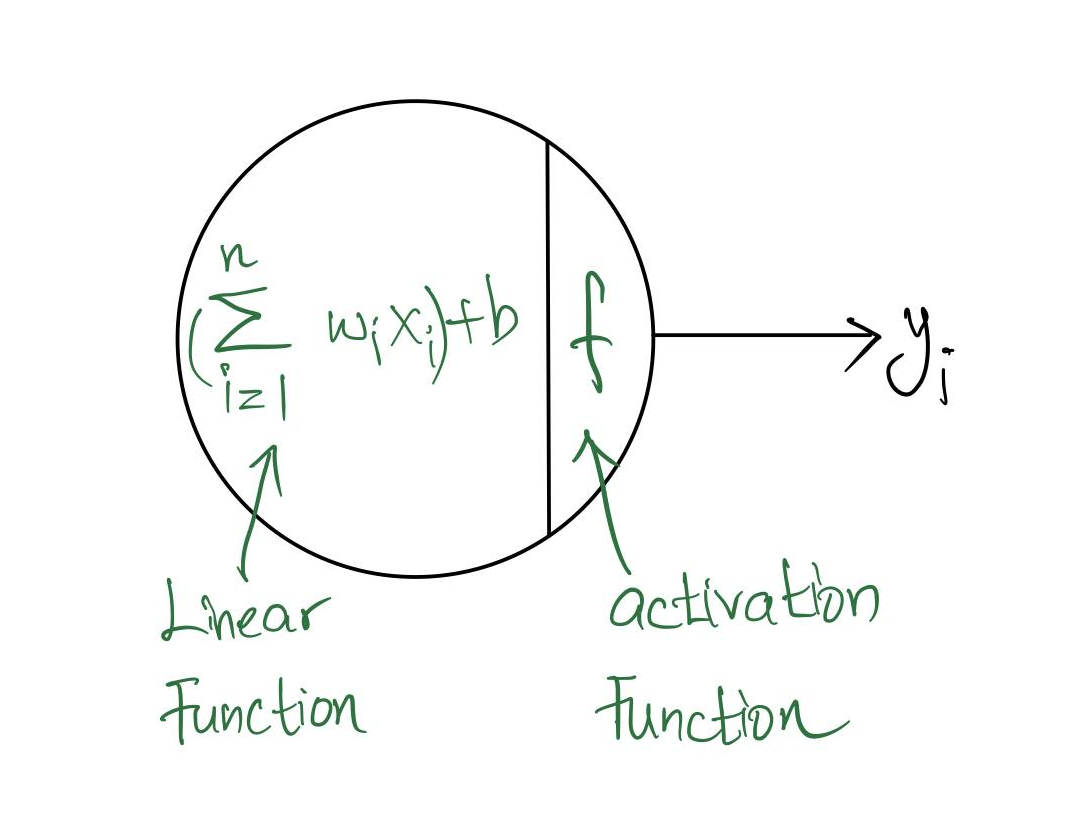 n
(∑ wᵢxᵢ)+b
i=1
f
yᵢ
Linear
Function
activation
Function